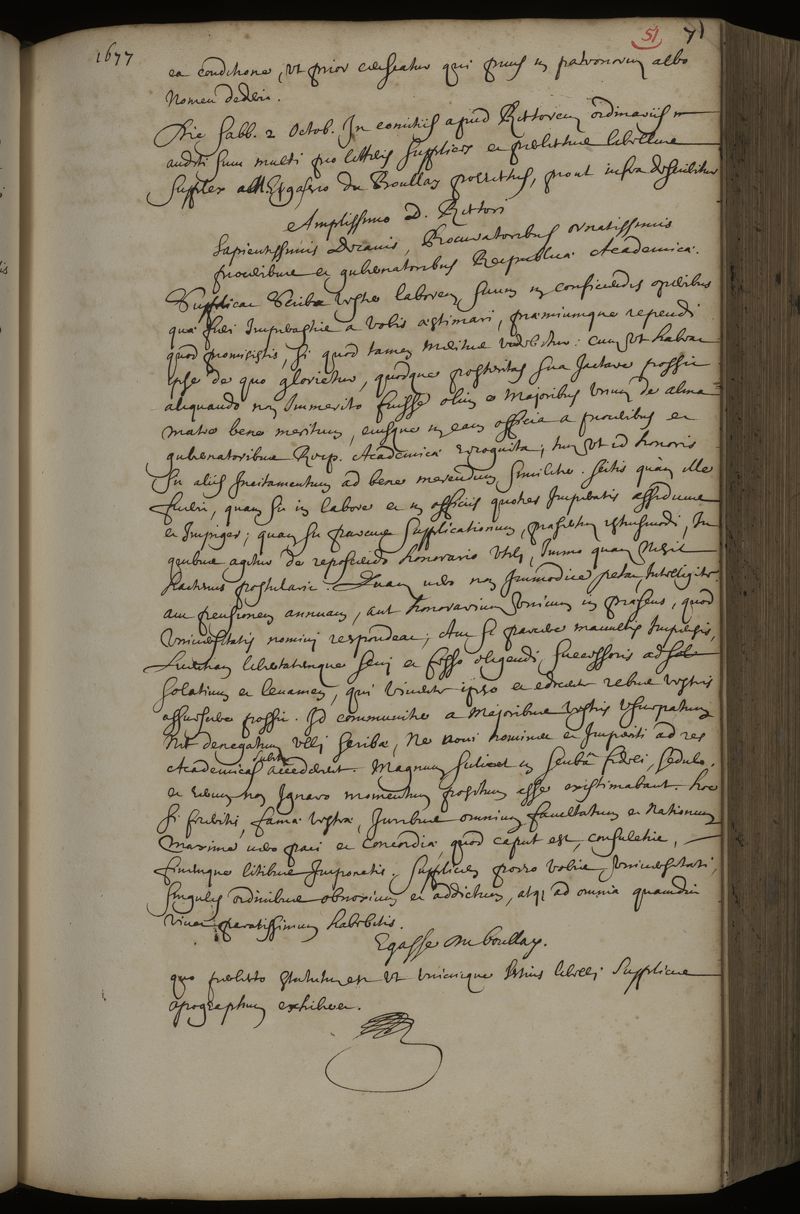 1677
51 71
ea conditione, ut prior censeatur qui prius in patronorum albo
nomen dederit.
Die Sabb. 2 Octob. In comitiis apud Rectorem ordinariis
auditi sunt multi pro litteris supplices et publicitus libellus
supplex a M Egassio du Boullay porrectus, prout infra describitur
Amplissimo D. Rectori
Sapientissimis Decanis, Procuratoribus ornatissimis
proceribus et gubernatoribus Reipublicæ Academicæ.
Supplicat Scriba vester laborem suum in conficiendis operibus
quæ fieri a vobis æstimari, præmiumque rependi
quod promisistis, si quod tamen meritus videbitur: cum ut habeat
ipse de quo glorietur, quodque posteritas sua jactare possit
aliquando non immerito fuisse olim e majoribus unum de alma
matre bene meritum, eiusque in eam officia a proceribus et
gubernatoribus Reip. Academicæ recognita; tum ut id honoris
sit aliis incitamentum ad bene merendum similiter. Scitis quàm ille
fuerit, quam sit in labore et in officiis quoties imperatis assiduus
et impiger; quam sit parcus supplicationum, præsertim istiusmodi, in
quibus agitur de reposcendo honorario utpote, immo quam nihil
hactenus postularit. Quam vero non immodice petat, intelligite.
aut pensionem annuam, aut honorarium unicum in præsens, quod
Universitatis nomini respondeat; aut si parcere mavultis impensis,
libertatemque seni et fesso eligendi successoris ad
solatium et levamen, qui vivente ipso et edocente rebus vestris
assuescere possit. Id communiter a majoribus vestris usurpatum
nec denegatum ulli scribæ, ne novi homines et imperiti ad res
Academicas subito accederent. Magnum scilicet in scribâ fideli, sedulo,
et rerum non ignaro momentum positum esse existimabant. hoc
si feceritis, famæ vestræ, juribus omnium facultatum et Nationum
maxime vero paci et concordiæ, quod caput est, consuletis,
finemque litibus imponetis. Supplicem porro vobis, universitati,
singulis ordinibus obnoxium et addictum, atq; ad omnia quamdiu
vivet paratissimum habebitis.
Egasse du boullay.
quo perlecto statutum est ut unicuique istius libelli supplicis
apographum exhiberet.